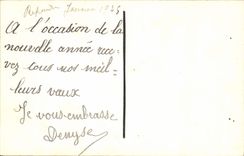 Répondu Janvier 1945
A l'occasion de la
nouvelle année rece-
vez tous nos meil-
leurs vœux
Je vous embrasse
Denyse